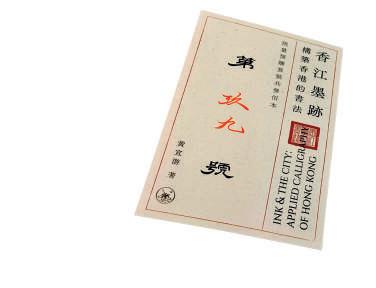 香江墨跡
構築香港的書法
第玖九號
黃宣游 著
INK & THE CITY:
APPLIED CALLIGRAPHY
OF HONG KONG